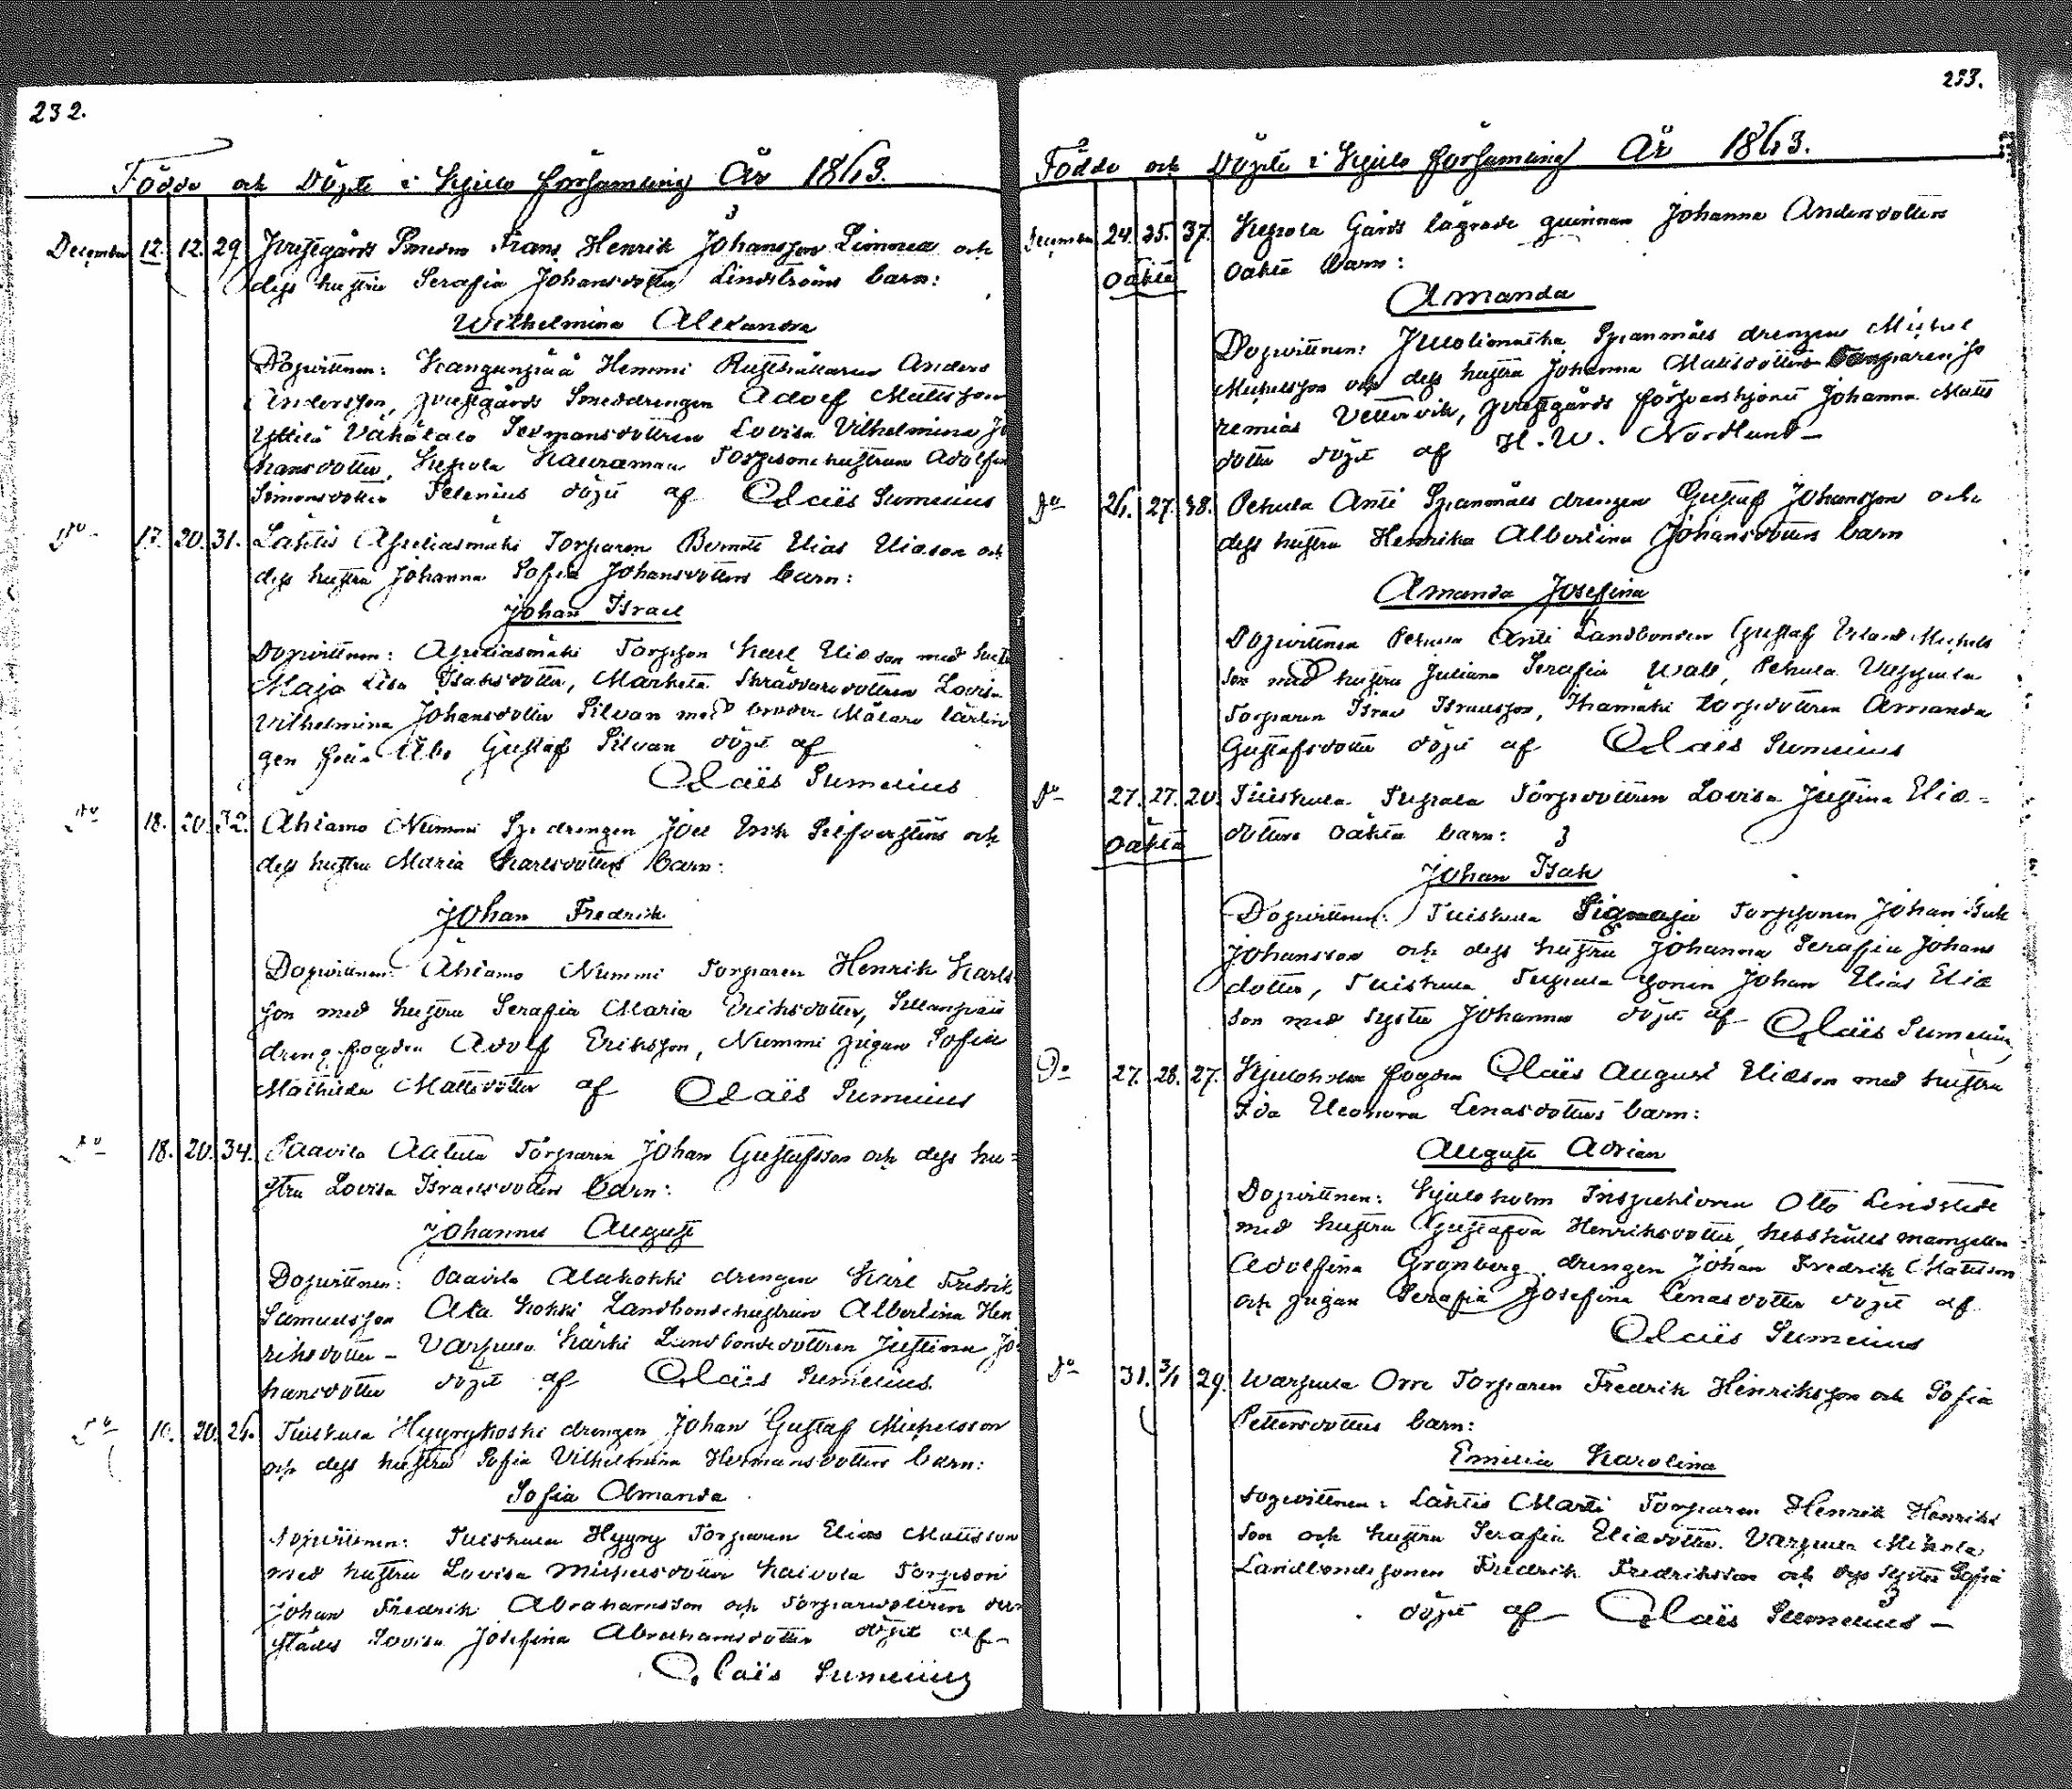 232.
Födde och Döpte i Kjulo församling År 1863.
December 12. 12. 29 Prestgårds Smeden Frans Henrik Johansson Linnrea och
dess hustru Serafia Johansdotter Lindströms barn:
Wilhelmina Alexandra
Dopvittnen: Kangunpää Hemmi Rusthållaren Anders
Andersson, prestgårds Smeddrengen Adolf Mattsson
Yttilä Vähätalo Sexmansdottren Lovisa Vilhelmina Jo
hansdotter, Kepola Kauraman Torparehustrun Adolfin
Simonsdotter Selenius döpt af Claës Sumelius
Do 17. 20. 31. Lähtis Ajuliasmäki Torparen Berndt Elias Eliason och
dess hustru Johanna Sofia Johansdotters barn:
Johan Israel
Dopvittnen: Torpson Karl Eliason med hust
Maja Lisa Isaksdotter, Marketa Skräddaredottren Lovisa
Vilhelmina Johansdotter Silvan med broder Målare lärlin
gen från Åbo Gustaf Silvan döpt af
Claës Sumelius
Do 18. 20. 32. Ahiamo Nummi Sp. drengen Joel Erik Silfversténs och
dess hustru Maria Karlsdotters barn:
Johan Fredrik
Dopvittnen: Ahiamo Nummi Torparen Henrik Karls
son med hustru Serafia Maria Eriksdotter, Sillanpää
dreng fogden Adolf Eriksson, Nummi pigan Sofia
Mathilda Mattsdotter af Claës Sumelius
Do 18. 20. 34. Paavila Aatula Torparen Johan Gustafsson och dess hu=
stru Lovisa Israelsdotters barn:
Johannes August
Dopvittnen: Paavila Alakokki drengen Karl Fredrik
Samuelsson Ala Kokki Landbondehustrun Albertina Hen
riksdotter - Varpula Kärki Landbondedottren Justina Jo
hansdotter döpt af Claës Sumelius
Do 20. 26. Tuiskula Hyyrykoski drengen Johan Gustaf Michelsson
och dess hustru Sofia Vilhelmina Hermansdotters barn:
Sofia Amanda
Dopvittnen: Tuiskula Hyyry Torparen Elias Mattsson
med hustru Lovisa Michelsdotter Kaivola Torpson
Johan Fredrik Abrahamsson och Torparedottren der
städes Lovisa Josefina Abrahamsdotter döpt af
Claës Sumelius
233.
Födde och Döpte i Kjulo församling År 1863.
December 24. 25. 37. Kepola Gårds lägrade quinnan Johanna Andersdotters
Oäkta Oäkta barn:
Amanda
Dopvittnen: Spanmåls drengen Michel
Michelsson och dess hustru Johanna Mattsdotter Torparen Je
remias Vettervik, prestgårds försvarshjonet Johanna Matts
dotter döpt af H. W. Nordlund -
Do 26. 27. 38. Pehula Anti Spanmåls drengen Gustaf Johansson och
dess hustru Henrika Albertina Johansdotters barn
Amanda Josefina
Dopvittnen Pehula Anti Landbonden Gustaf Erland Michels
son med hustru Juliana Serafia Wall, Pehula Uappula
Torparen Israel Israelsson, Ihamäki torpdottren Amanda
Gustafsdotter döpt af Claës Sumelius
Do 27. 27. 20. Tuiskula Supala Torpdottren Lovisa Justina Elias=
Oäkta dotters oäkta barn:
Johan Isak
Dopvittnen: Tuiskula Torpsonen Johan Isak
Johansson och dess hustru Johanna Serafia Johans
dotter, Tuiskula Supala sonen Johan Elias Elia
son med syster Johanna döpt af Claës Sumelius
Do 27. 28. 27. Kjuloholm fogden Claës August Eliason med hustru
Ida Eleonora Lenasdotters barn:
August Adrian
Dopvittnen: Kjuloholm Inspektoren Otto Lindstedt
med hustru Gustafva Henriksdotter, hushålls mamsellen
Adolfina Grönberg drengen Johan Fredrik Mattsson
och pigan Serafia Josefina Lenasdotter döpt af
Claës Sumelius
Do 31. 3/1 29. Warpula Orre Torparen Fredrik Henriksson och Sofia
Pettersdotters barn:
Emilia Karolina
Dopvittnen: Lähtis Marti Torparen Henrik Henriks
son och hustru Serafia Eliasdotter. Varpula Mikola
Landbondesonen Fredrik Fredriksson och dess syster Sofia
döpt af Claës Sumelius -